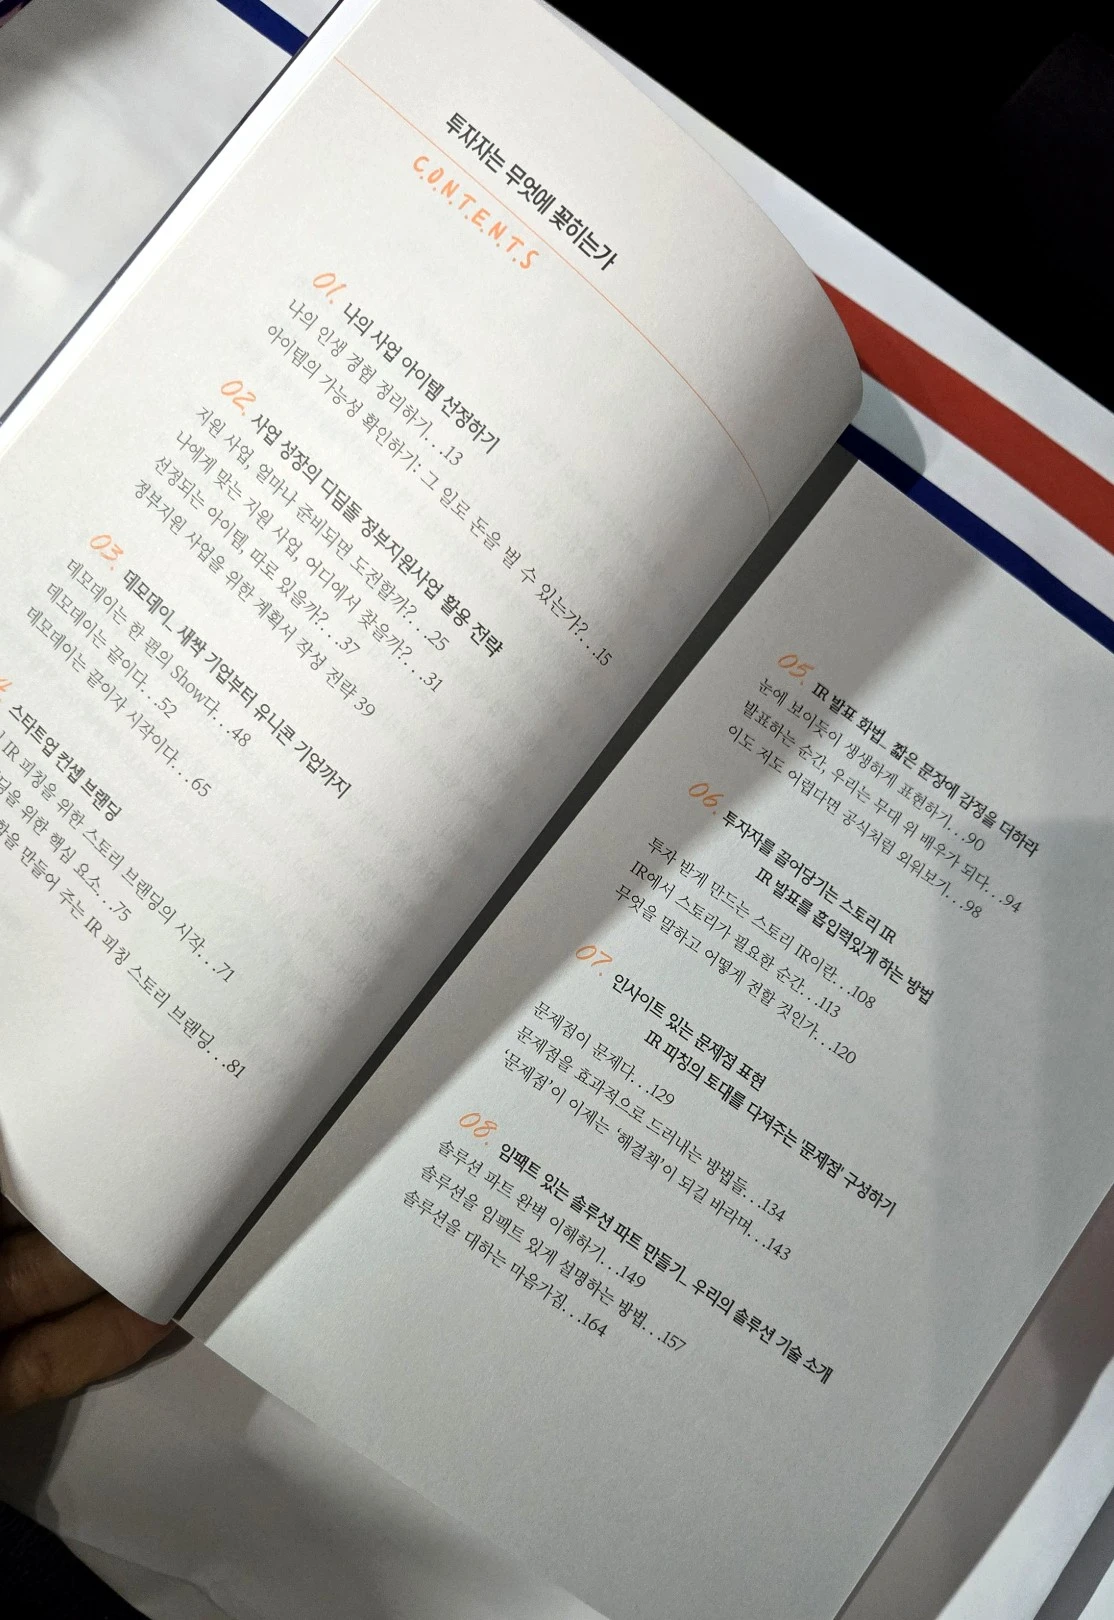 투자자는 무엇에 꽂히는가
C.O.N.T.E.N.T.S
01. 나의 사업 아이템 선정하기
나의 인생 경험 정리하기...13
아이템의 가능성 확인하기: 그 일로 돈을 벌 수 있는가?...15
02. 사업 성장의 디딤돌 정부지원사업 활용 전략
지원 사업, 얼마나 준비되면 도전할까?...25
나에게 맞는 지원 사업, 어디에서 찾을까?...31
선정되는 아이템, 따로 있을까?...37
정부지원 사업을 위한 계획서 작성 전략 39
03. 데모데이_ 새싹 기업부터 유니콘 기업까지
데모데이는 한 편의 Show다...48
데모데이는 끝이다...52
데모데이는 끝이자 시작이다...65
스타트업 컨셉 브랜딩
IR 피칭을 위한 스토리 브랜딩의 시작...71
위한 핵심 요소...75
만들어 주는 IR 피칭 스토리 브랜딩...81
05. IR 발표 화법_ 짧은 문장에 감정을 더하라
눈에 보이듯이 생생하게 표현하기...90
발표하는 순간, 우리는 무대 위 배우가 되다...94
이도 저도 어렵다면 공식처럼 외워보기...98
06. 투자자를 끌어당기는 스토리 IR
IR 발표를 흡입력있게 하는 방법
투자 받게 만드는 스토리 IR이란...108
IR에서 스토리가 필요한 순간...113
무엇을 말하고 어떻게 전할 것인가...120
07. 인사이트 있는 문제점 표현
IR 피칭의 토대를 다져주는 '문제점' 구성하기
문제점이 문제다...129
문제점을 효과적으로 드러내는 방법들...134
'문제점'이 이제는 '해결책'이 되길 바라며...143
08. 임팩트 있는 솔루션 파트 만들기_ 우리의 솔루션 기술 소개
솔루션 파트 완벽 이해하기...149
솔루션을 임팩트 있게 설명하는 방법...157
솔루션을 대하는 마음가짐...164